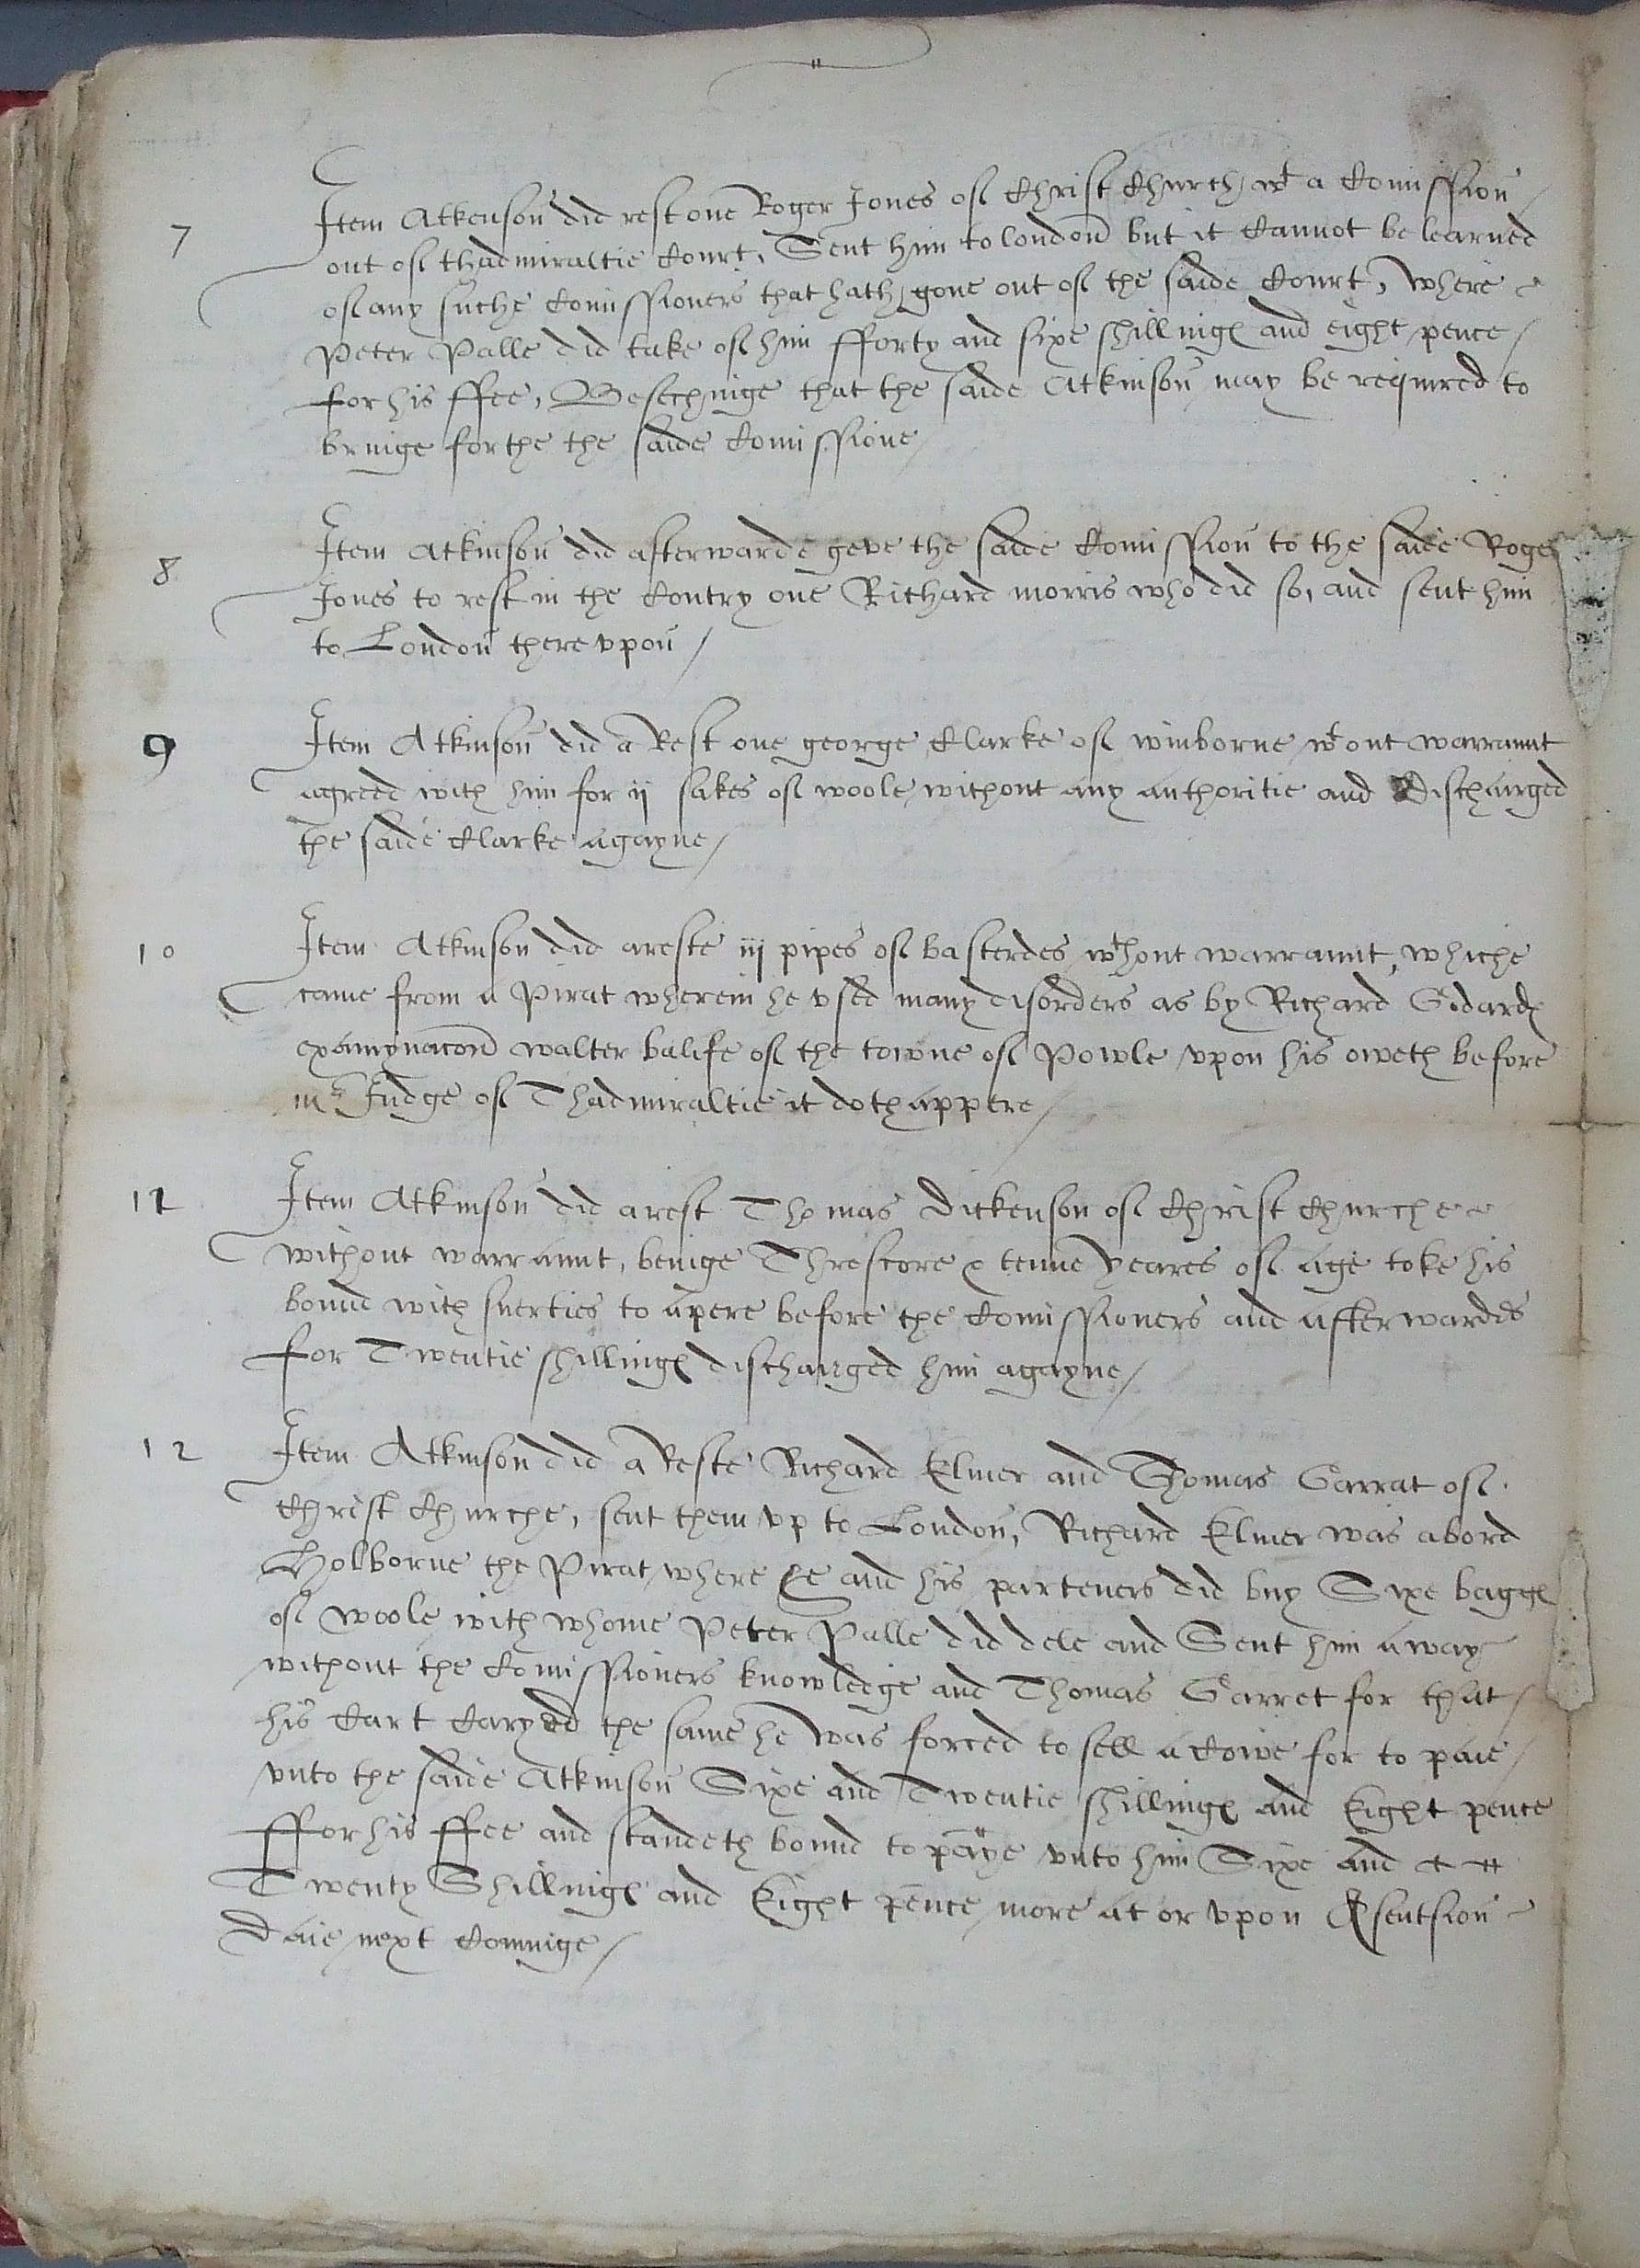 7 Item Atkenson did rest one Roger Jones of Christ Church, wt a Comission /
out of thadmiraltie Court, Sent him to london but it Cannot be learned
of any suche Comissioners that hath gone out of the saide Court, where
Peter Palle did take of him fforty and sixe shillinges and eight pence /
for his ffee, Besechinge that the saide Atkinson may be required to
bringe forthe the saide Comissione /
8 Item Atkinson did afterwarde geve the saide Comission to the saide Roger
Jones to rest in the Contry one Richard morris who did so, and sent him
to London there vpon /
9 Item Atkinson did a Rest one george Clarke of winborne, wt out warraunt
agreed with him for ij sakes of woole, without any authoritie and discharged
the saide Clarke agayne /
10 Item Atkinson did areste iij pipes of basterdes, wthout warraunt, whiche
came from a Pirat wherein he vsed many disorders as by Richard Godardes
examynacon walter balife of the towne of Powle vpon his oweth before
mr Judge of Thadmiraltie it doth appere /
11 Item Atkinson did a rest Thomas Dickenson of Christ Churche
without warraunt, beinge Threscore & tenne yeares of age toke his
bound with suerties to apere before the Comissioners and afterwardes
for Twentie shillinges discharged him agayne /
12 Item Atkinson did a Reste Richard Elmer and Thomas Garrat of
Christ Churche, sent them vp to London, Richard Elmer was abord
Holborne the Pirat, where he and his parteners did buy Sixe bagges
of woole, with whome Peter Palle did dele and Sent him away
without the Comissioners knowledge and Thomas Garret for that /
his Cart Caryed the same he was forced to sell a Cowe for to paie /
vnto the saide Atkinson Sixe and Twentie shillinges and Eight pence
ffor his ffee and standeth bound to paye vnto him Sixe and
Twenty Shillinges and Eight pence more at or vpon Asentsion
Daie next Cominge /